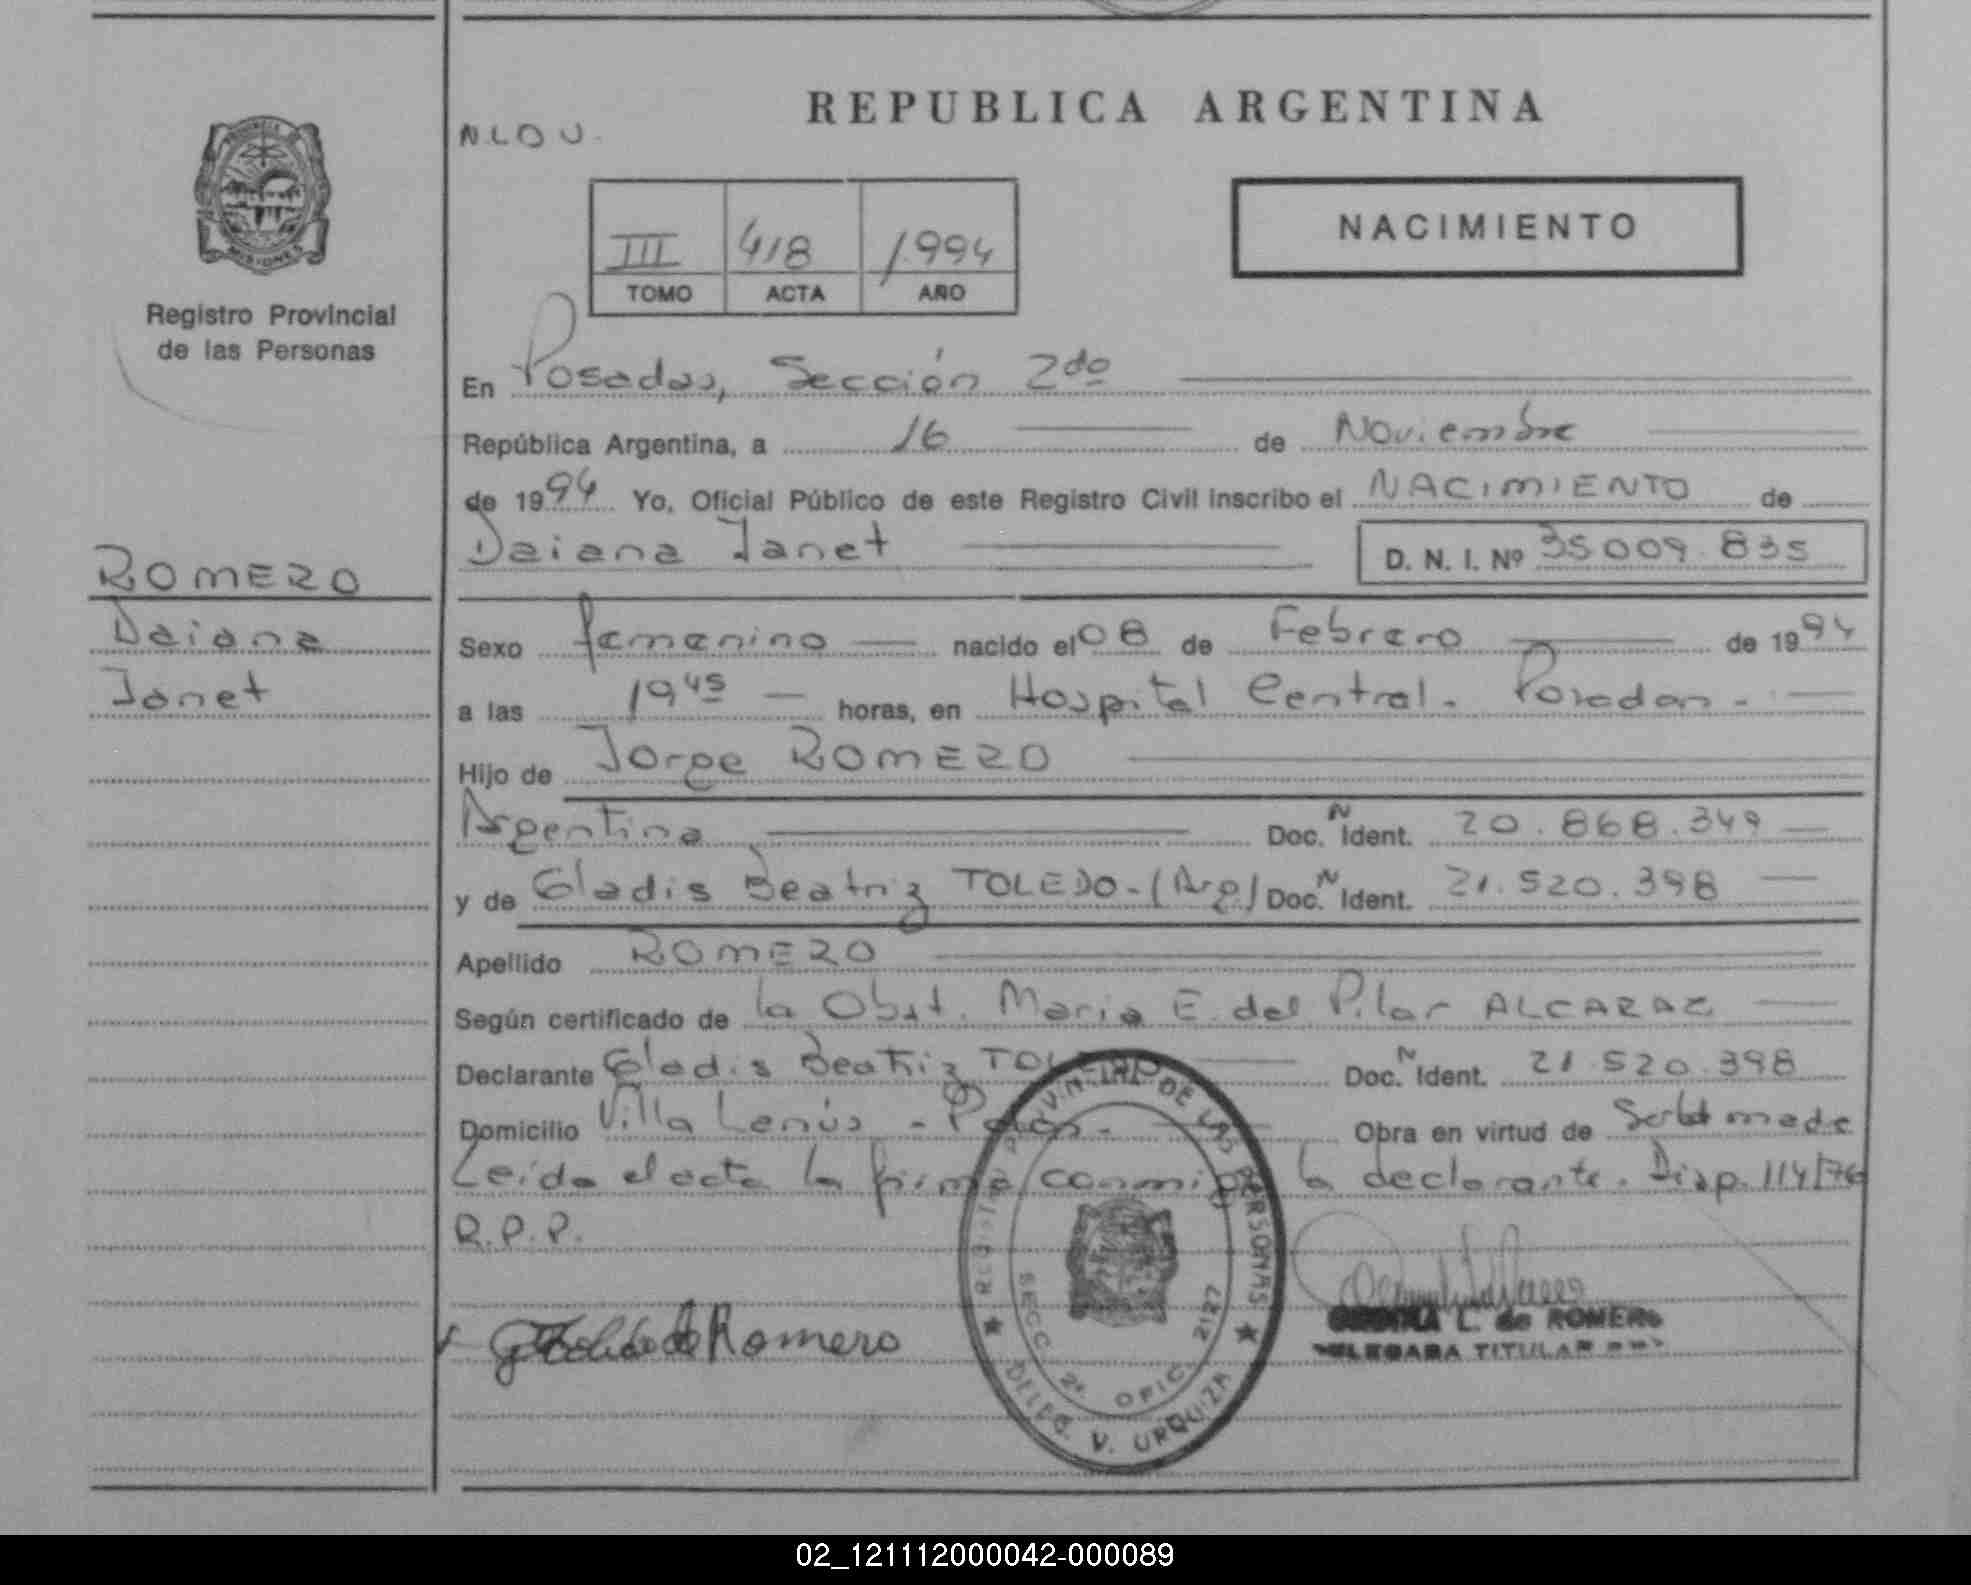 REPUBLICA ARGENTINA
N.L.O U.
NACIMIENTO
III 418 1.994
TOMO ACTA AÑO
PROVINCIA DE
MISIONES
Registro Provincial
de las Personas
En Posadas, Sección 2da
República Argentina, a 16 de Noviembre
de 1994 Yo, Oficial Público de este Registro Civil inscribo el NACIMIENTO de
Daiana Janet D. N. I. Nº 35009.835
ROMERO
Daiana
Janet
Sexo femenino nacido el 08 de Febrero de 1994
a las 19 45 horas, en Hospital Central. Posadas.
Hijo de Jorge ROMERO
Argentina Doc. N Ident. 20.868.349
y de Gladis Beatriz TOLEDO.(Arg) Doc. N Ident. 21.520.398
Apellido ROMERO
Según certificado de la Obst. Maria E. del Pilar ALCARAZ
Declarante Gladis Beatriz TOLEDO Doc. N Ident. 21.520.398
Domicilio Villa Lanús - Pdas. Obra en virtud de
Leída el acta la firma conmigo la declarante. Disp. 114/76
R.P.P.
de Romero
L. de ROMERO
DELEGADA TITULAR
REGISTRO PROVINCIAL DE LAS PERSONAS
SECC 2ª OFIC. 2127
DELEG. V. URQUIZA
02_121112000042-000089